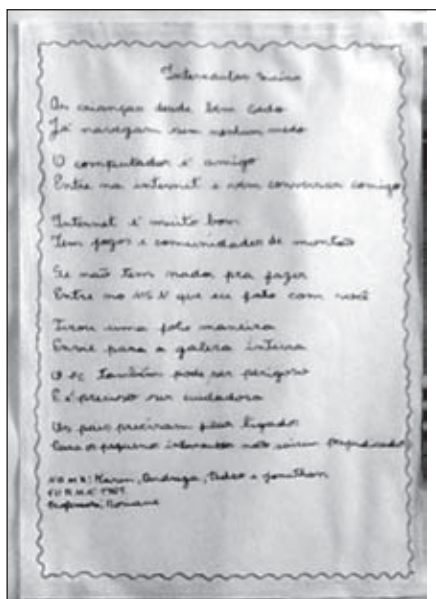 Internautas
As crianças desde bem cedo
Já navegam sem nenhum medo
O computador é amigo
Entre na internet e vem conversar comigo
Internet é muito bom
Tem jogos e comunidades de montão
Se não tem nada pra fazer
Entre no MSN que eu falo com você
Tirou uma foto maneira
Envie para a galera inteira
O pc também pode ser perigoso
E é preciso ser
Os pais precisam ficar ligados
Para os pequenos não saírem prejudicados
NOME: Karen, Andreza, Pedro e Jonathan
TURMA:
Professora: Rosiane